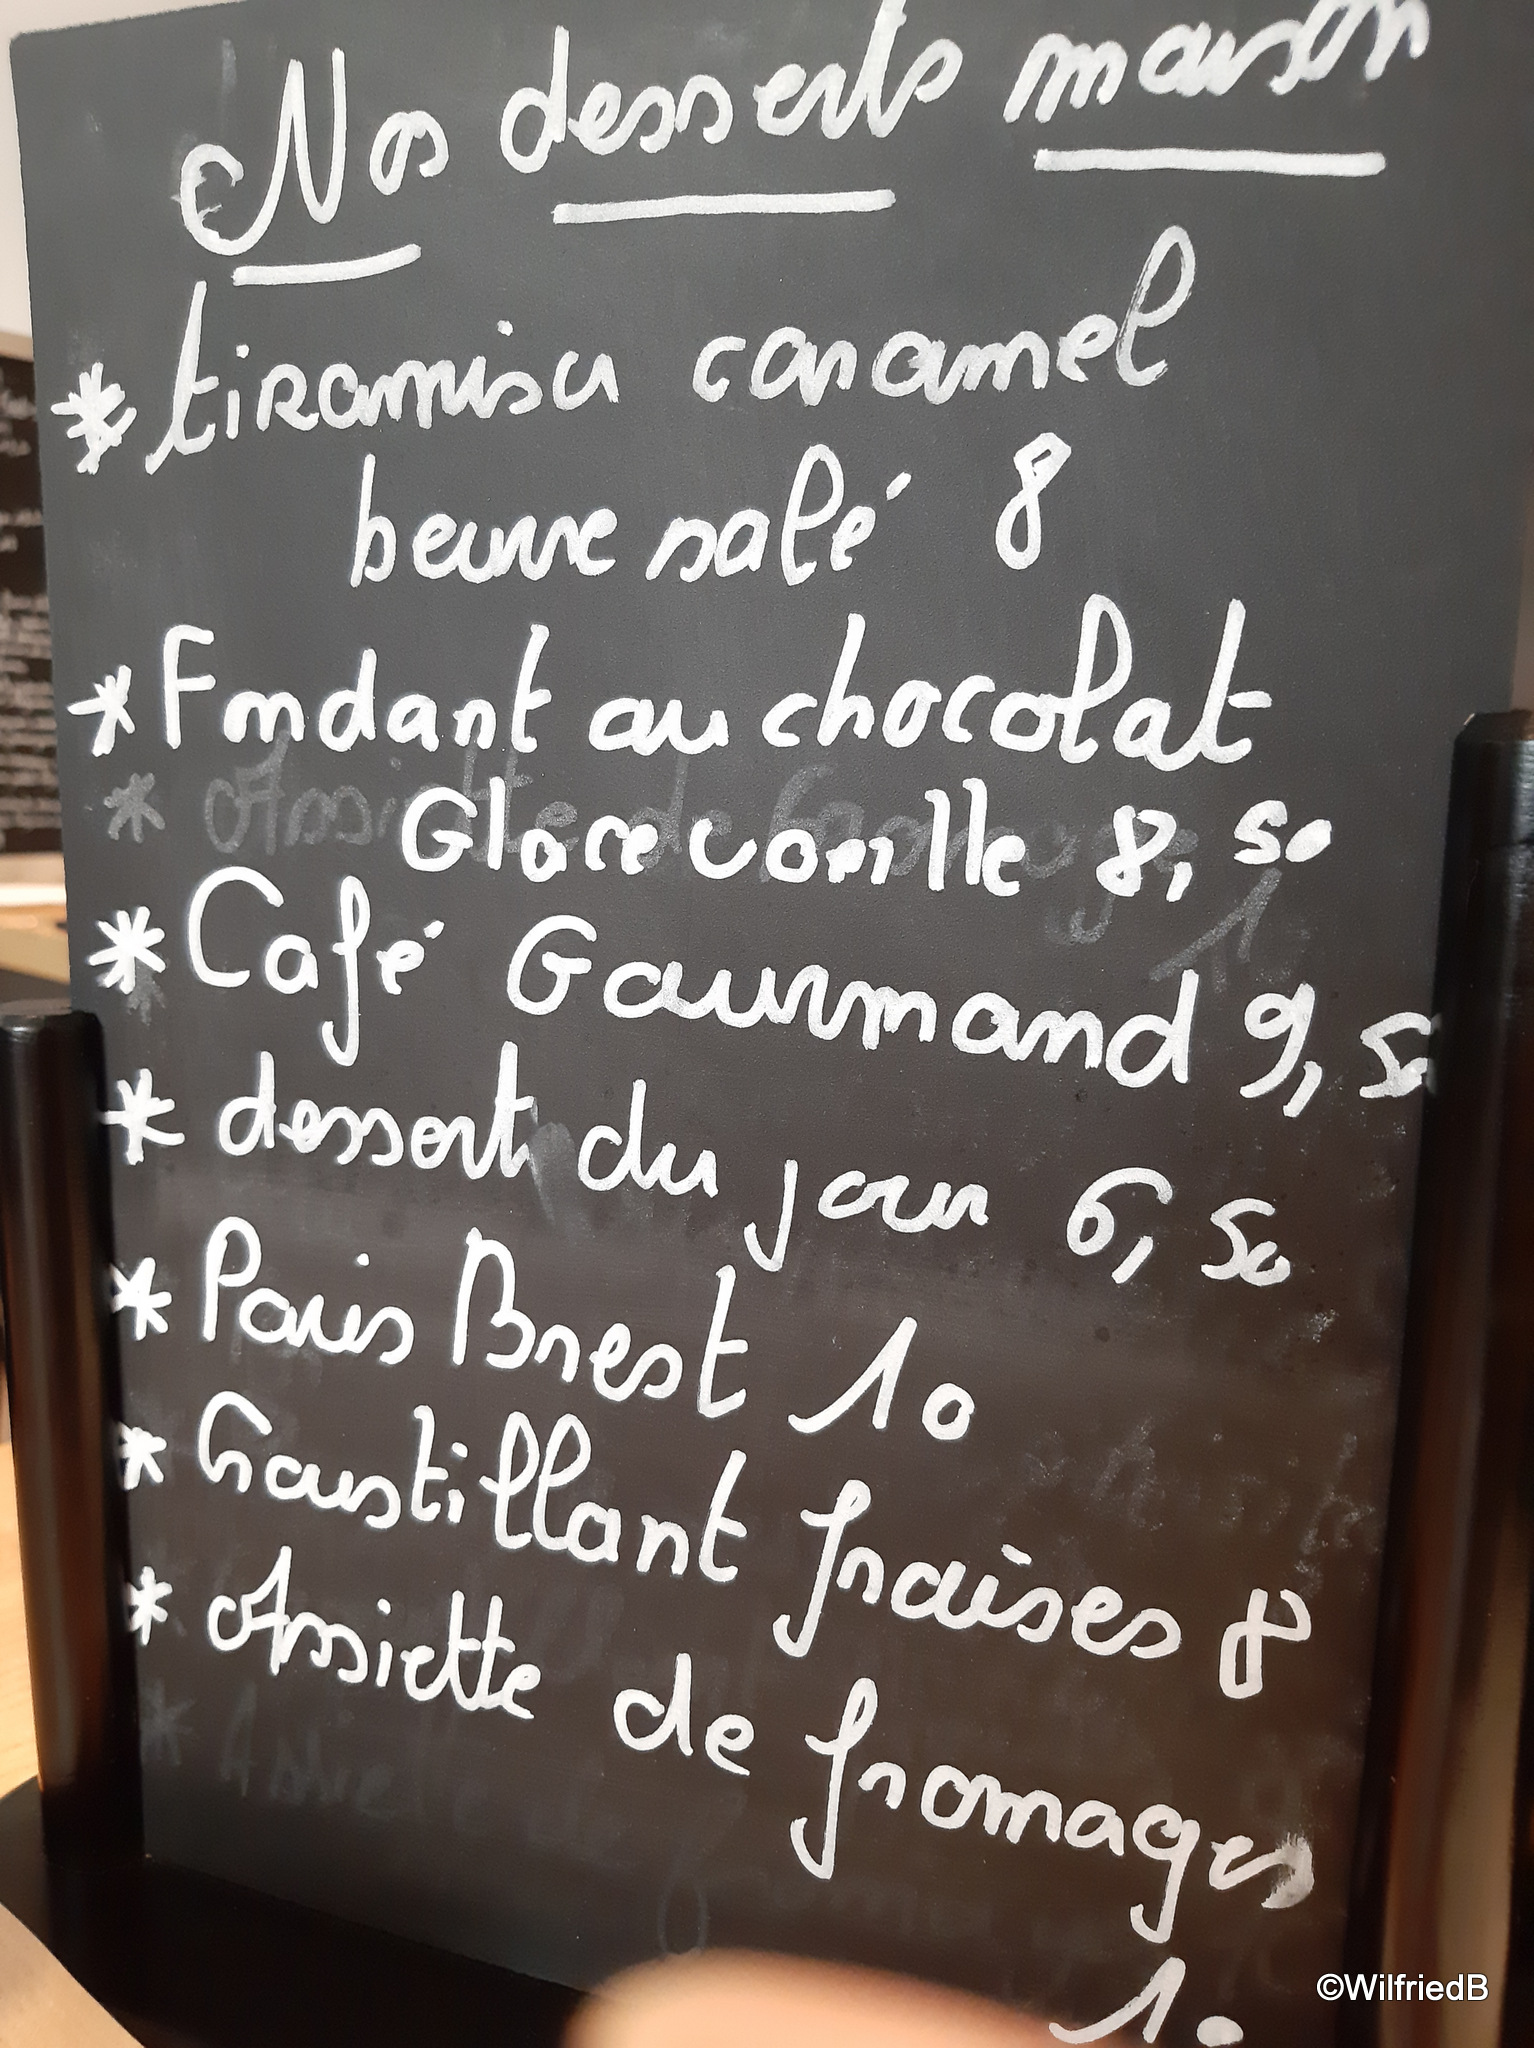 Nos desserts maison
* tiramisu caramel
beurre salé 8
* Fondant au chocolat
* Assiette de fromage
Glace vanille 8,50
* Café Gourmand 9,50
* dessert du jour 6,50
* Paris Brest 10
* Croustillant fraises 8
* Assiette de fromages
10
©WilfriedB